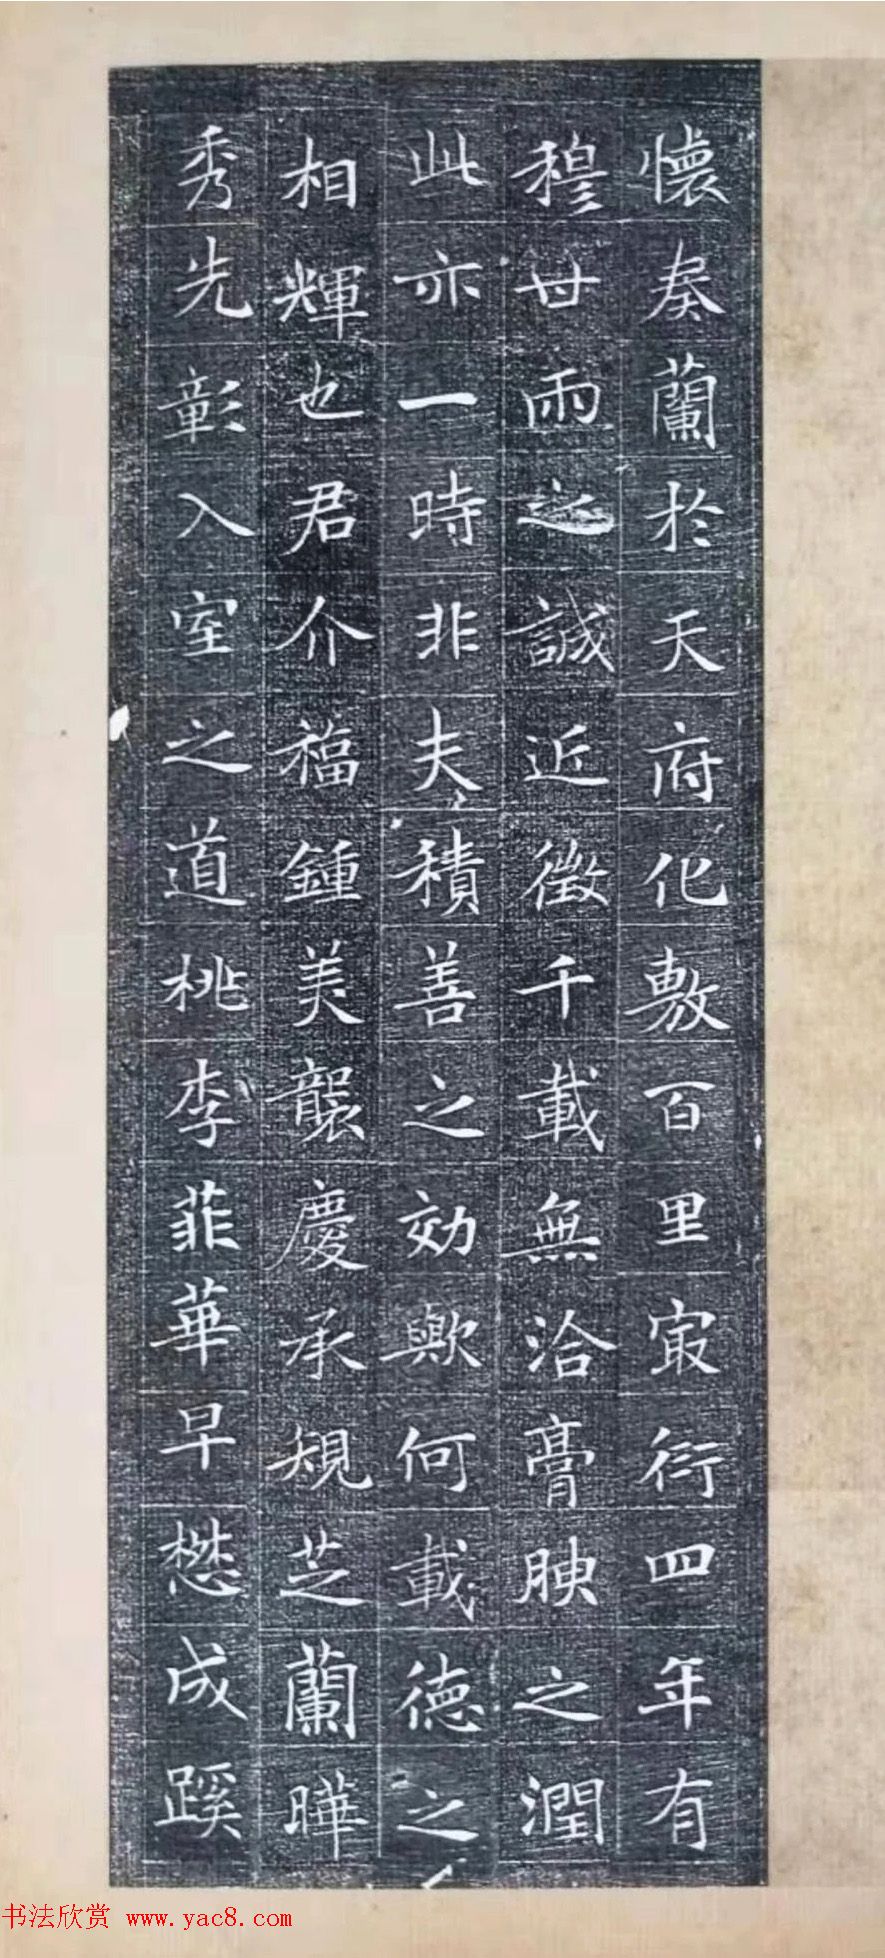 懷奏蘭於天府化敷百里寂衍四年有
穆卋雨之誠近徵千載無洽膏腴之潤
此亦一時非夫積善之効歟何載德之
相輝也君介福鍾美襲慶承規芝蘭曄
秀先彰入室之道桃李菲華早懋成蹊
书法欣赏 www.yac8.com